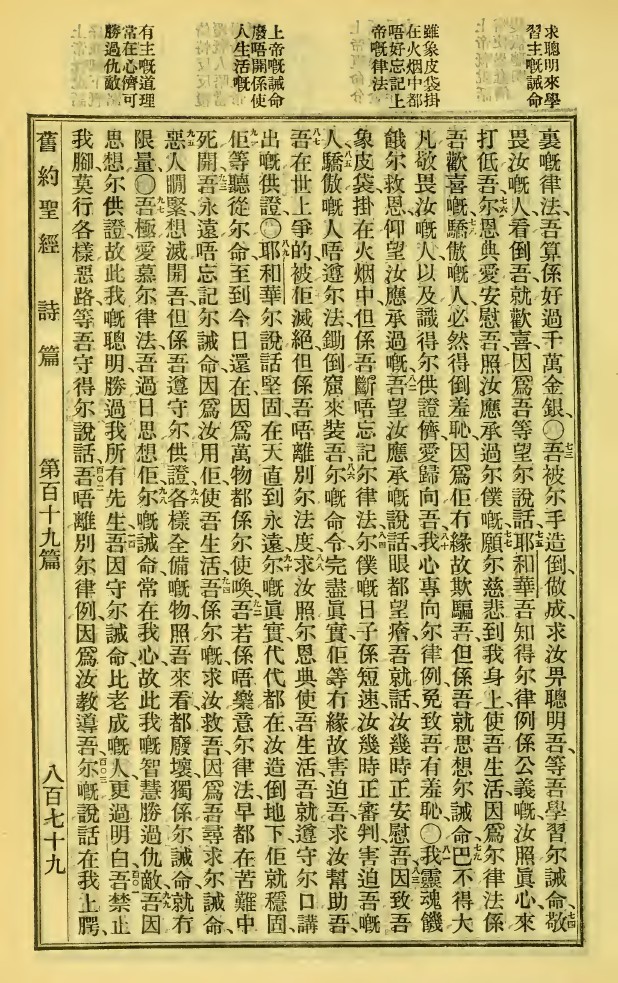 求聰明來學
習主嘅誡命
雖象皮袋掛
在火烟中都
唔好忘記上
帝嘅律法
上帝嘅誡命
廢唔開係使
人生活嘅
有主嘅道理
常在心儕可
勝過仇敵
裏嘅律法、吾算係好過千萬金銀、〇七三吾被尔手造倒、做成、求汝畀聰明吾等吾學習尔誡命、七四敬
畏汝嘅人看倒吾就歡喜、因爲吾等望尔說話、七五耶和華吾知得尔律例係公義嘅、汝照眞心來
打低吾、七六尔恩典愛安慰吾、照汝應承過尔僕嘅、七七願尔慈悲到我身上使吾生活、因爲尔律法係
吾歡喜嘅、七八驕傲嘅人必然得倒羞恥、因爲佢冇緣故欺騙吾、但係吾就思想尔誡命、七九巴不得大
凡敬畏汝嘅人、以及識得尔供證儕愛歸向吾、八十我心專向尔律例免致吾有羞恥、〇八一我靈魂饑
餓尔救恩、仰望汝應承過嘅、八二吾望汝應承嘅說話眼都望瘡、吾就話汝幾時正安慰吾、八三因致吾
象皮袋掛在火烟中、但係吾斷唔忘記尔律法、八四尔僕嘅日子係短速、汝幾時正審判害迫吾嘅
人、八五驕傲嘅人唔遵尔法、鋤倒窟來裝吾、八六尔嘅命令完盡眞實、佢等冇緣故害迫吾、求汝幫助吾、
八七吾在世上爭的被佢滅絕、但係吾唔離別尔法度、八八求汝照尔恩典使吾生活、吾就遵守尔口講
出嘅供證、〇八九耶和華尔說話堅固在天直到永遠、九十尔嘅眞實代代都在、汝造倒地下佢就穩固、
九一佢等聽從尔命、至到今日還在、因爲萬物都係尔使喚、九二吾若係唔樂意尔律法早都在苦難中
死開、九三吾永遠唔忘記尔誡命、因爲汝用佢使吾生活、九四吾係尔嘅求汝救吾、因爲吾尋求尔誡命、
九五惡人瞯緊想滅開吾、但係吾遵守尔供證、九六各樣全備嘅物照吾來看都廢壞、獨係尔誡命就冇
限量、〇九七吾極愛慕尔律法、吾過日思想佢、九八尔嘅誡命常在我心、故此我嘅智慧勝過仇敵、九九吾因
思想尔供證、故此我嘅聰明勝過我所有先生、一百吾因守尔誡命、比老成嘅人更過明白、百〇一吾禁止
我脚莫行各樣惡路、等吾守得尔說話、百〇二吾唔離別尔律例、因爲汝教導吾、百〇三尔嘅說話在我上腭、
舊約聖經　詩篇　第百十九篇　八百七十九